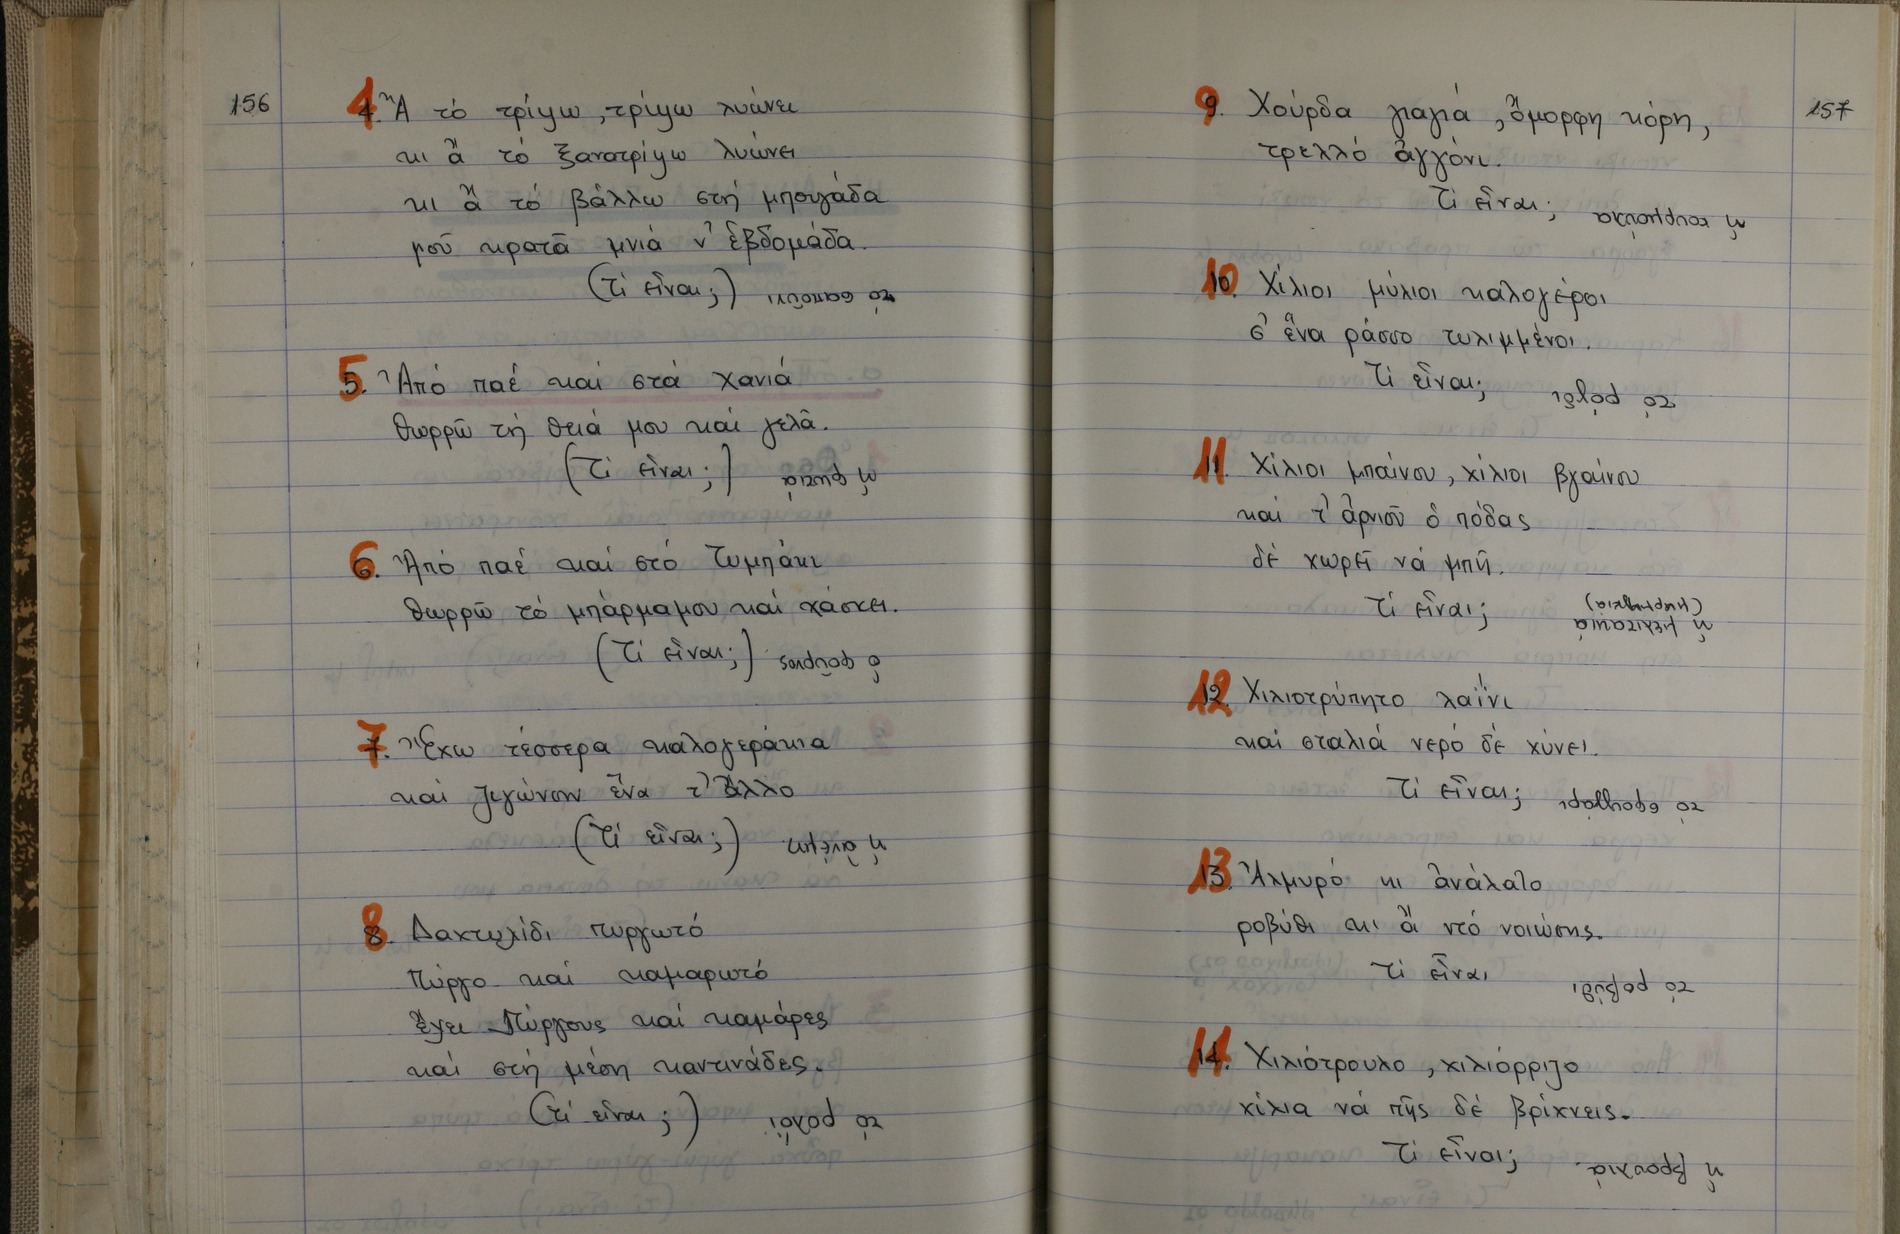 156
4. Ἄ τό τρίψω, τρίψω λυώνει
κι ἄ τό ξανατρίψω λυώνει
κι ἄ τό βάλλω στή μπουγάδα
μοῦ κρατᾶ μνιά ν' ἑβδομάδα.
(τί εἶναι;) το σαπούνι
5. Ἀπό παέ καί στά Χανιά
θωρρῶ τή θειά μου καί γελᾶ.
(τί εἶναι;) ἡ φωτιά
6. Ἀπό παέ καί στό Τυμπάκι
θωρρῶ τό μπάρμα μου καί χάσκει.
(τί εἶναι;) ὁ φοῦρνος
7. Ἔχω τέσσερα καλογεράκια
καί ζυγώνουν ἕνα τ' ἄλλο
(τί εἶναι;) ἡ ἀνέμη
8. Δακτυλίδι πυργωτό
πύργο καί καμαρωτό
ἔχει πύργους καί καμάρες
καί στή μέση καντινάδες.
(τί εἶναι;) το ρολόι
157
9. Χούρδα γιαγιά, ὄμορφη κόρη,
τρελλό ἀγγόνι.
Τί εἶναι; ἡ κουρμούλα
10. Χίλιοι μύλιοι καλογέροι
σ' ἕνα ράσσο τυλιμμένοι.
Τί εἶναι; το ρόγδι
11. Χίλιοι μπαίνου, χίλιοι βγαίνου
καί τ' ἀρνιοῦ ὁ πόδας
δέ χωρεῖ νά μπῇ.
Τί εἶναι; ἡ μελιτακιά
(μυρμηγκιά)
12. Χιλιοτρύπητο λαΐνι
καί σταλιά νερό δέ χύνει.
Τί εἶναι; το σφουγγάρι
13. Ἁλμυρό κι ἀνάλατο
ροβύθι κι ἄ ντό νοιώσης.
Τί εἶναι το ροβύθι
14. Χιλιότρουλο, χιλιόρριζο
χίλια νά πῇς δέ βρίχνεις.
Τί εἶναι; ἡ βρουλιά